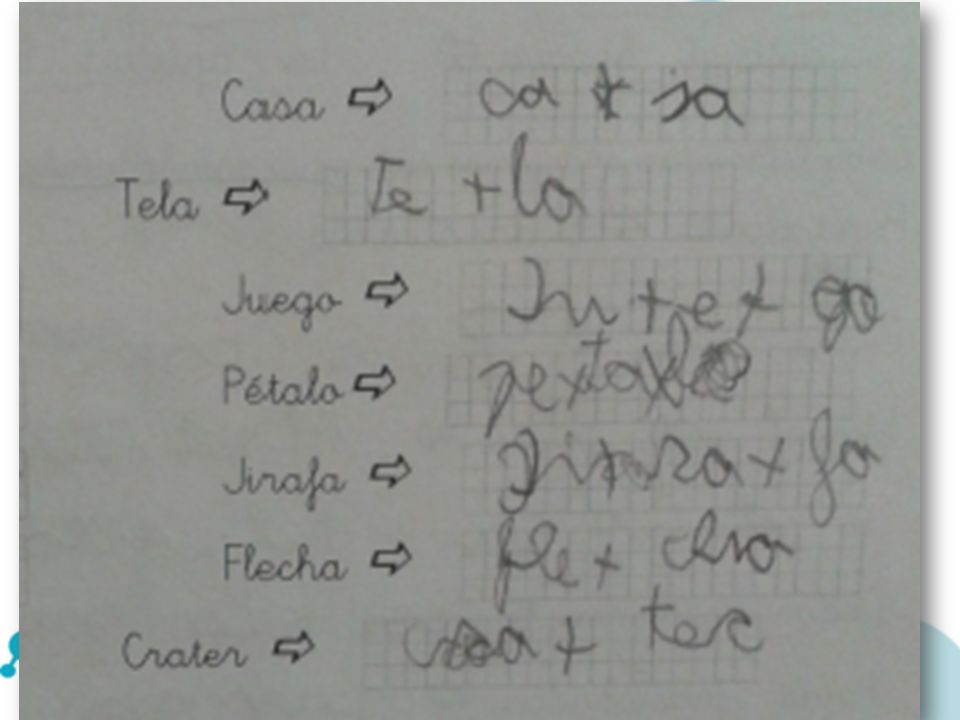 Casa ⇨ ca + sa
Tela ⇨ Te + la
Juego ⇨ Ju + e + go
Pétalo ⇨ pe x ta x lo
Jirafa ⇨ Ji + ra + fa
Flecha ⇨ fle + cha
Crater ⇨ cra + ter